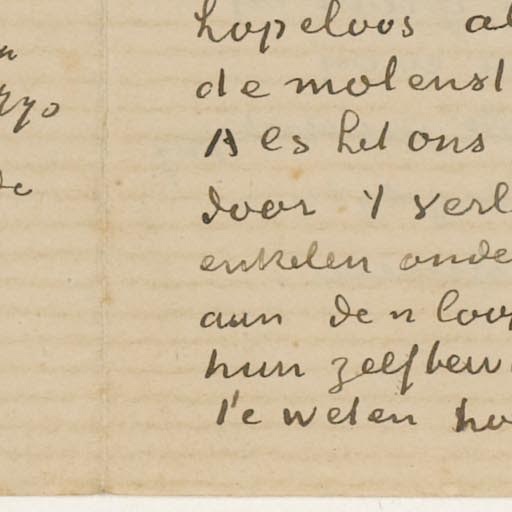 hopeloos al
de molenst
Als het ons
door 't verl
enkelen onde
aan den loop
hun zelfbew
te weten ho